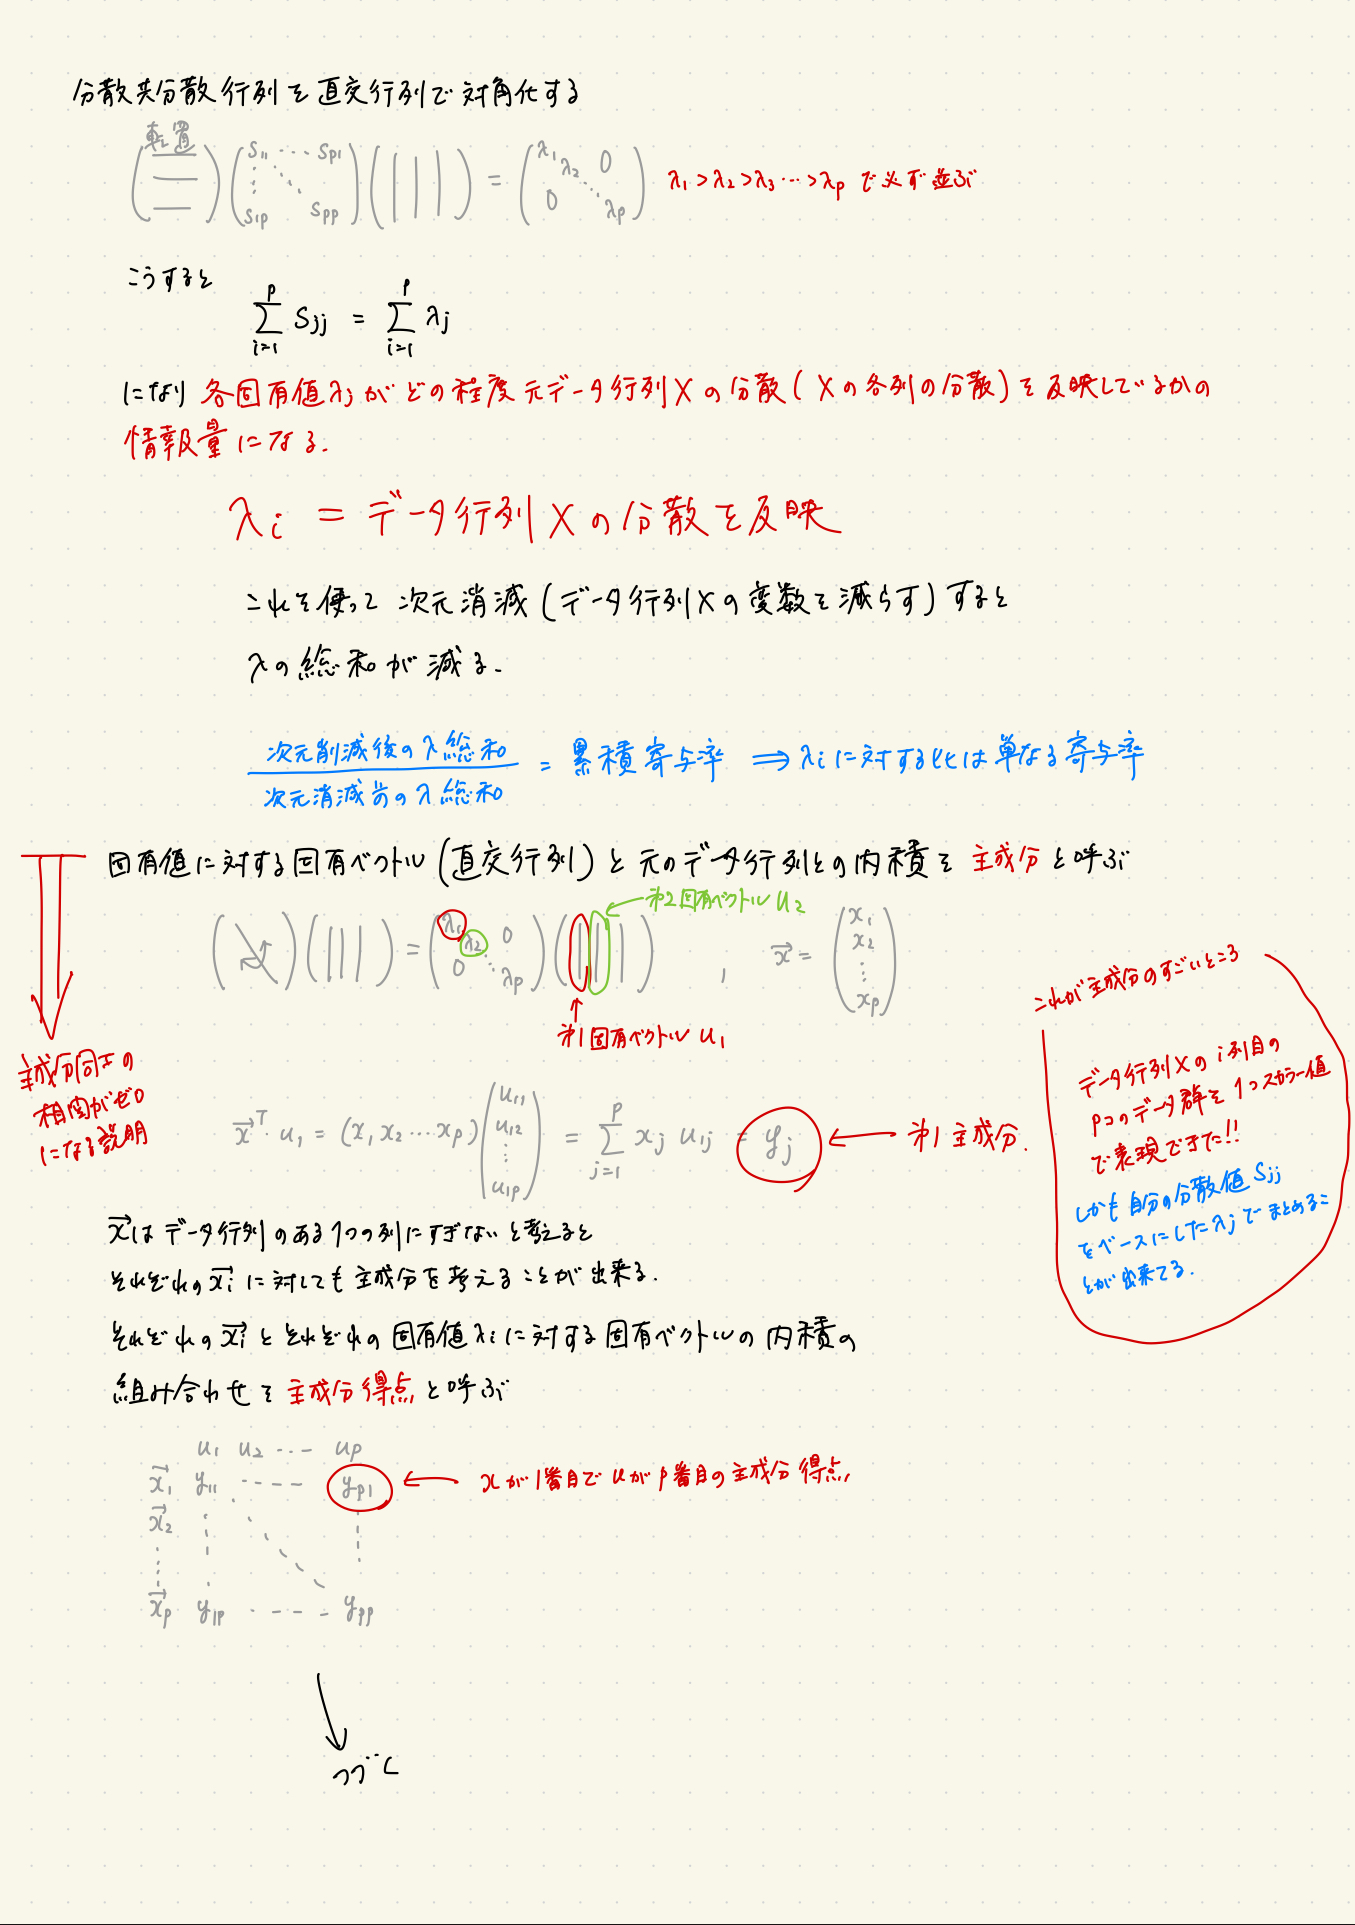 分散共分散行列を直交行列で対角化する
転置
S11 ... Sp1
S1p Spp
= λ1 λ2 0 0 λp
λ1 > λ2 > λ3 ... > λp で必ず並ぶ
こうすると
p Σ i=1 Sjj = p Σ i=1 λj
になり 各固有値λjがどの程度元データ行列Xの分散(Xの各列の分散)を反映しているかの
情報量になる.
λi = データ行列Xの分散を反映
これを使って 次元消減(データ行列Xの変数を減らす)すると
λの総和が減る.
次元削減後のλ総和
次元消減前のλ総和
= 累積寄与率 ⟹ λiに対する比は単なる寄与率
固有値に対する固有ベクトル(直交行列)と元のデータ行列との内積を主成分と呼ぶ
第2固有ベクトル u2
= λ1 λ2 0 0 λp
, x⃗ = x1 x2 ⋮ xp
第1固有ベクトル u1
主成分同士の
相関がゼロ
になる説明
x⃗ᵀ・u1 = (x1 x2 ... xp) (u11 u12 ⋮ u1p) = p Σ j=1 xj u1j = yj ← 第1主成分.
これが主成分のすごいところ
データ行列Xのi列目の
pコのデータ群を1つスカラー値
で表現できた!!
しかも自分の分散値Sjj
をベースにしたλjでまとめるこ
とが出来てる.
x⃗はデータ行列のある1つの列にすぎないと考えると
それぞれのx⃗iに対しても主成分を考えることが出来る.
それぞれのx⃗iとそれぞれの固有値λiに対する固有ベクトルの内積の
組み合わせを主成分得点と呼ぶ
u1 u2 ... up
x⃗1 y11 ---- yp1 ← xが1番目でuがp番目の主成分得点
x⃗2
⋮
x⃗p y1p ---- ypp
つづく